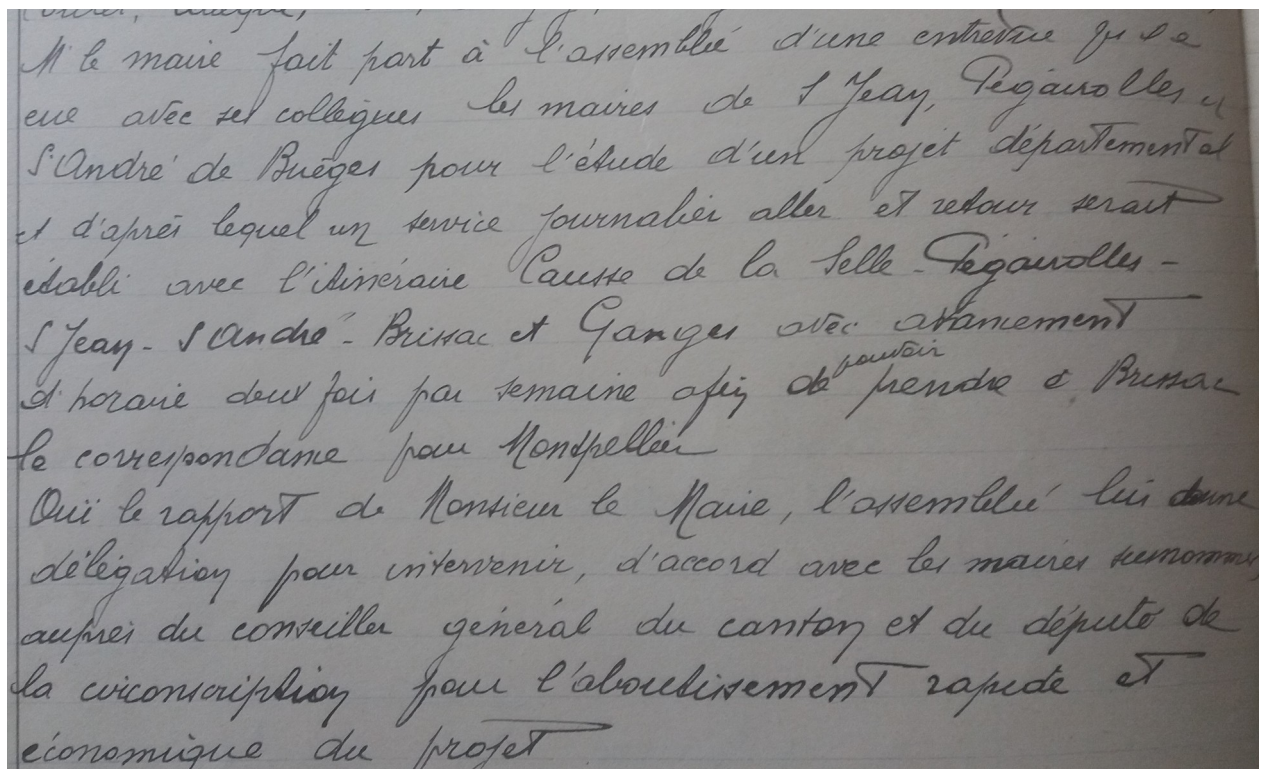 M le maire fait part à l'assemblée d'une entrevue qu'il a
eue avec ses collègues les maires de S Jean, Pégairolles et
S'André de Buèges pour l'étude d'un projet départemental
et d'après lequel un service journalier aller et retour serait
établi avec l'itinéraire Causse de la Selle - Pégairolles -
S Jean - S André - Brissac et Ganges avec avancement
d'horaire deux fois par semaine afin de pouvoir prendre à Brissac
la correspondance pour Montpellier
Ouï le rapport de Monsieur le Maire, l'assemblée lui donne
délégation pour intervenir, d'accord avec les maires surnommés
auprès du conseiller général du canton et du député de
la circonscription pour l'aboutissement rapide et
économique du projet